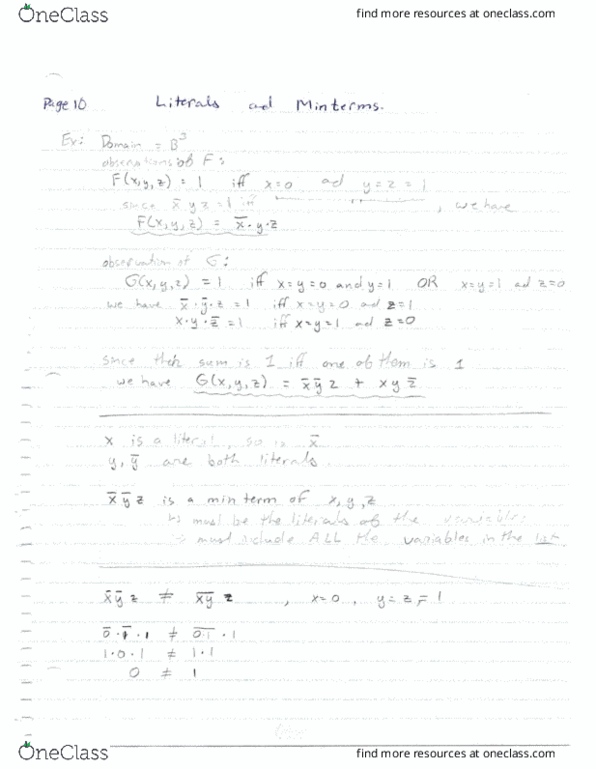 OneClass
find more resources at oneclass.com
Page 10 Literals ad Minterms.
Ex: Domain = B³
observations of F:
F(x,y,z) = 1 iff x=0 ad y=z=1
since x̄ y z = 1 iff , we have
F(x,y,z) = x̄·y·z
observation of G:
G(x,y,z) = 1 iff x=y=0 and y=1 OR x=y=1 ad z=0
we have x̄·ȳ·z = 1 iff x=y=0 ad z=1
x·y·z̄ = 1 iff x=y=1 ad z=0
since their sum is 1 iff one of them is 1
we have G(x,y,z) = x̄ȳz + xyz̄
x is a literal, so is x̄
y, ȳ are both literals.
x̄ȳz is a min term of x,y,z
↳ must be the literals of the variables
↳ must include ALL the variables in the list
x̄ȳz ≠ x̅y̅ z , x=0, y=z=1
0̄·1̄·1 ≠ 0̅·̅1̅·1
1·0·1 ≠ 1·1
0 ≠ 1
OneClass
find more resources at oneclass.com